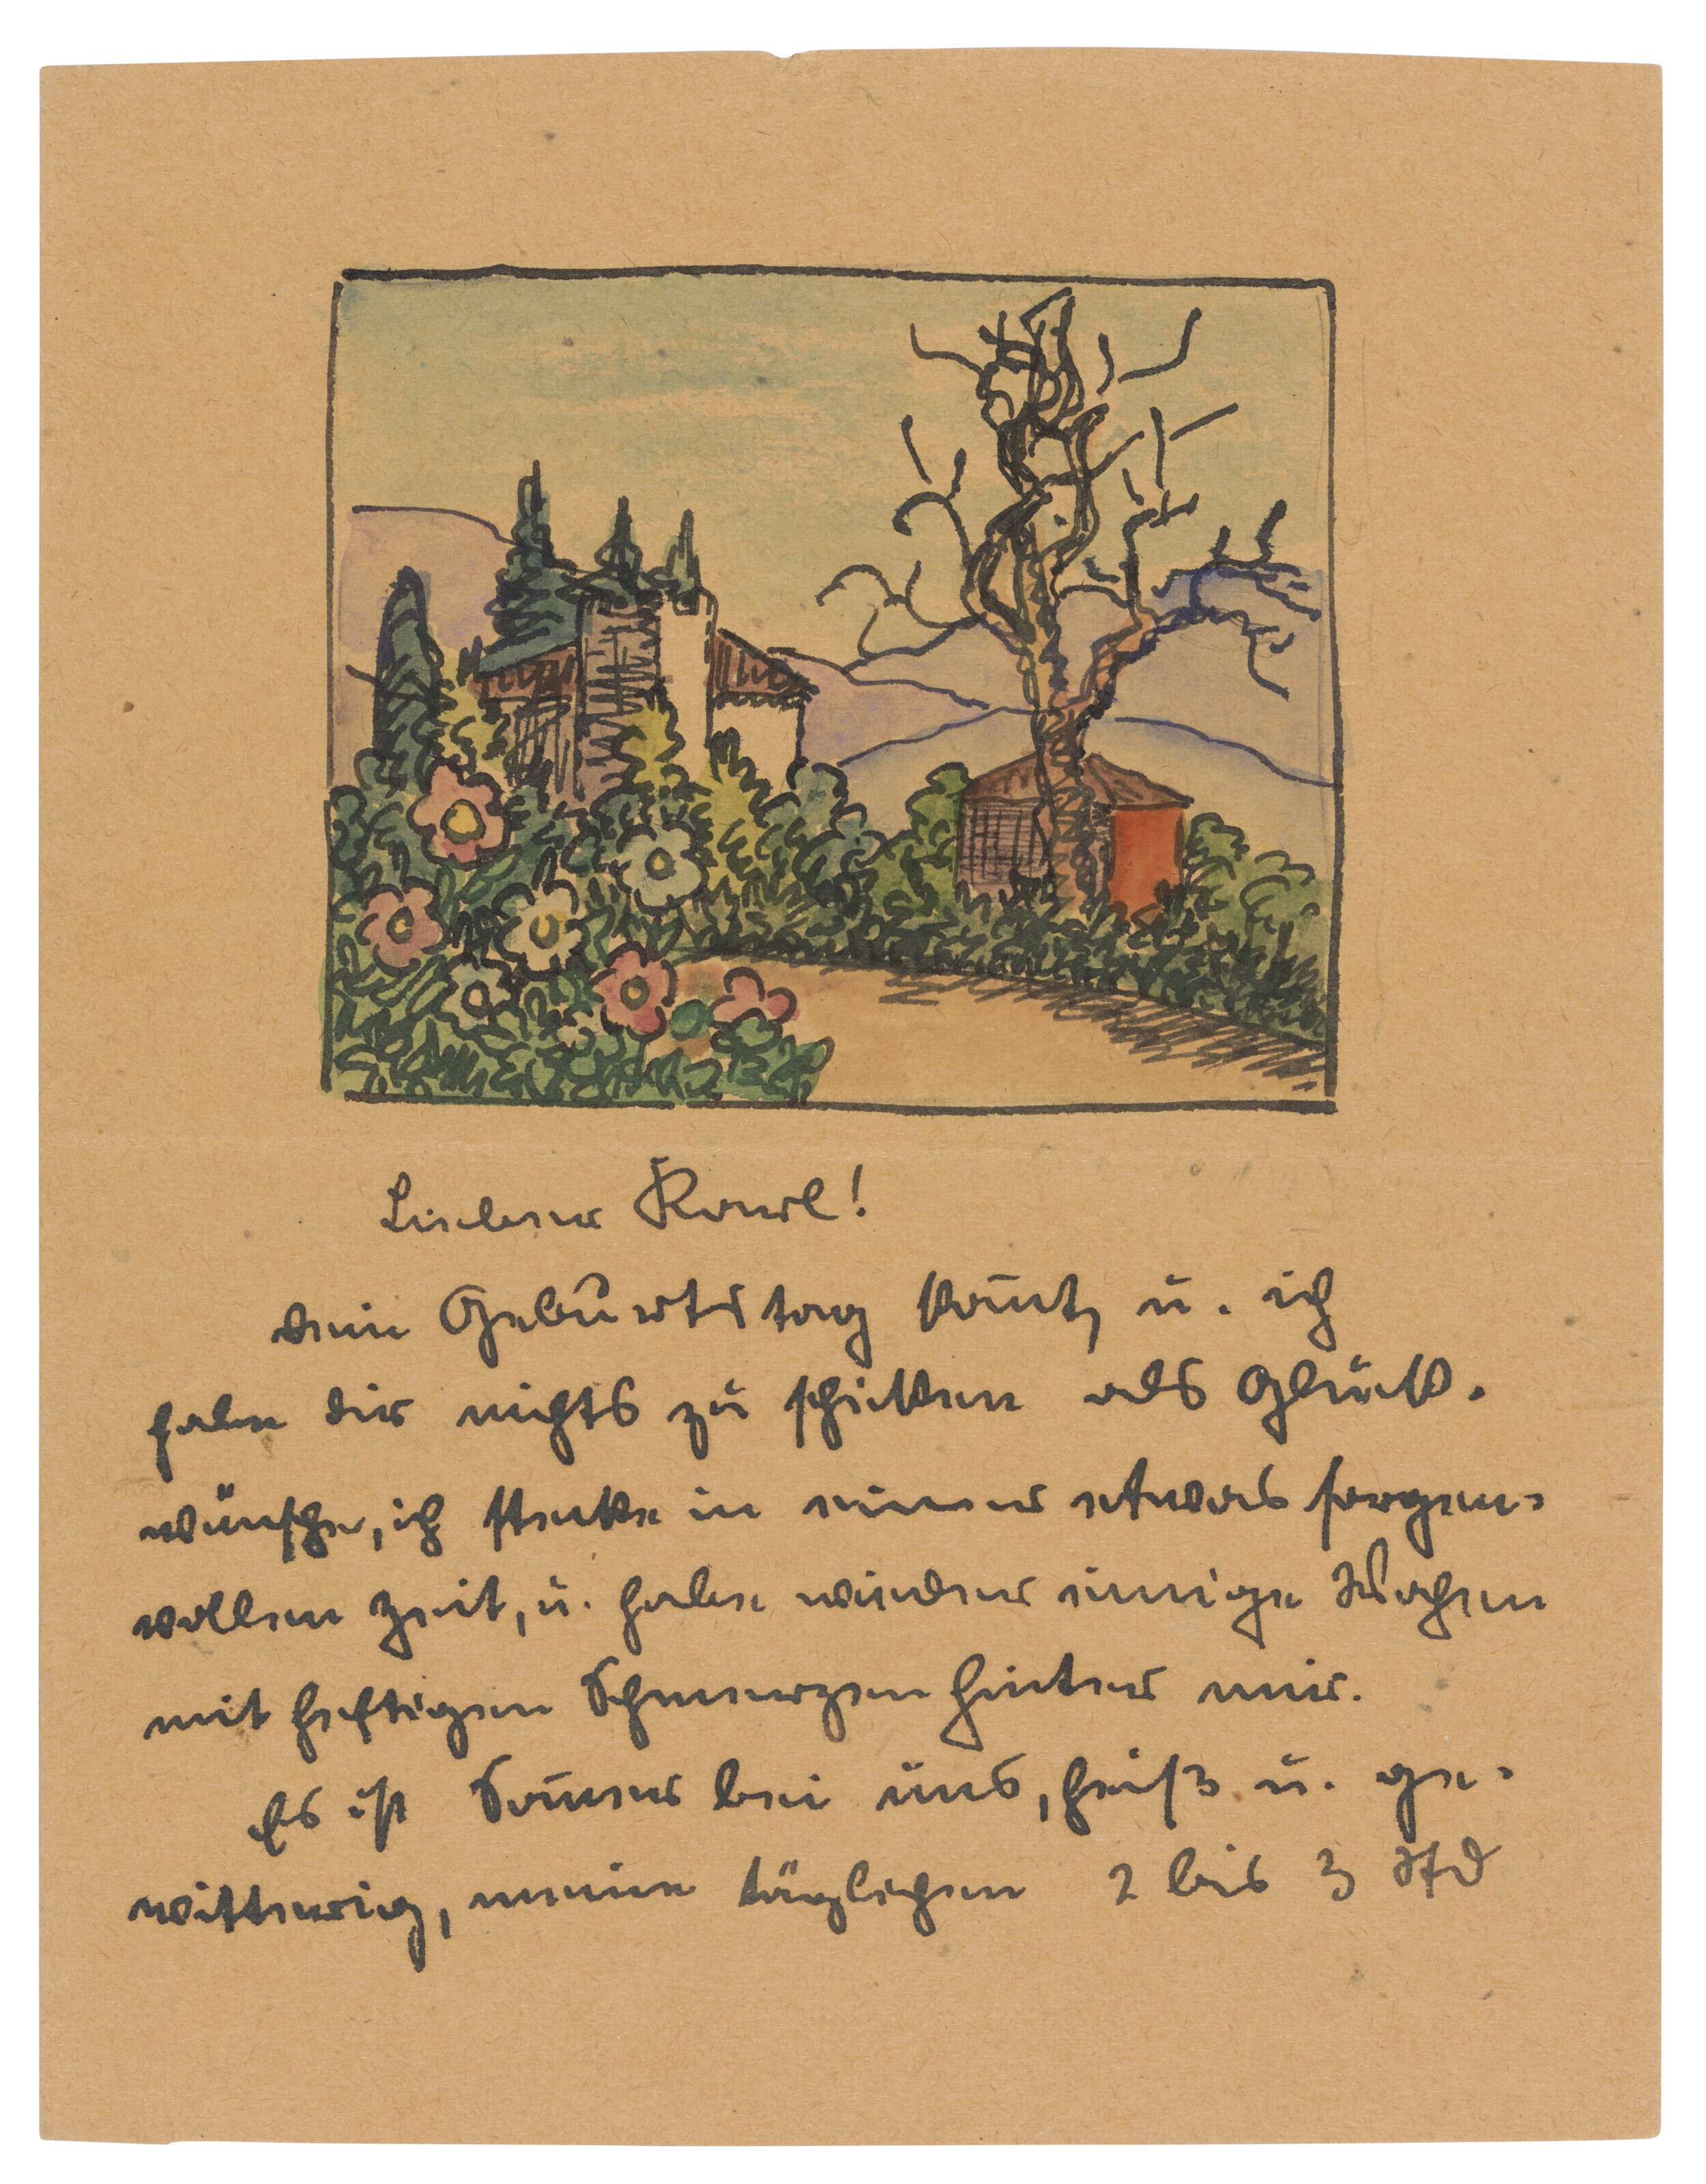 Lieber Karl!
dein Geburtstag kom̅t, u. ich
habe dir nichts zu schicken als Glück-
wünsche, ich stecke in einer etwas sorgen-
vollen Zeit, u. habe wieder einige Wochen
mit heftigen Schmerzen hinter mir.
Es ist Som̅er bei uns, heiß u. ge-
witterig, meine täglichen 2 bis 3 Std